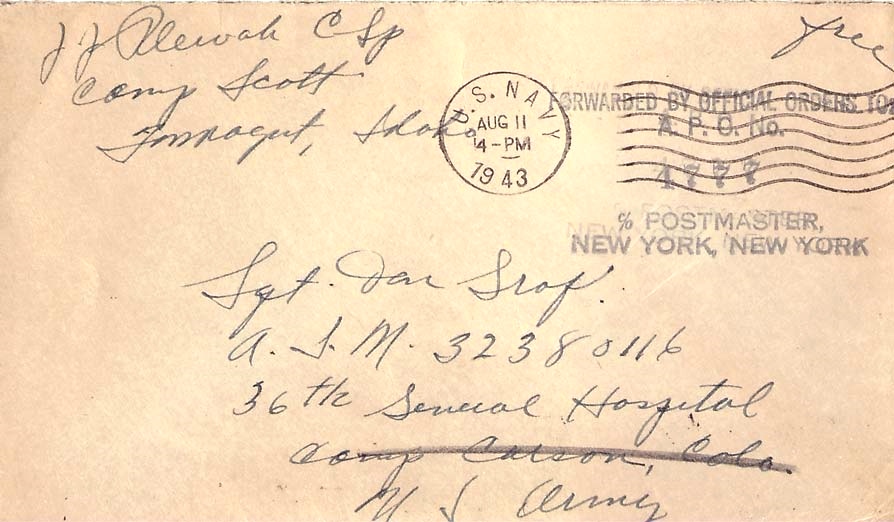 J J Plewak C Sp
Camp Scott
Farragut, Idaho
free
U.S. NAVY
AUG 11
4-PM
1943
FORWARDED BY OFFICIAL ORDERS TO:
A. P. O. No.
4777
% POSTMASTER,
NEW YORK, NEW YORK
Sgt. Dan
A. S. N. 32380116
36th General Hospital
Camp Carson, Colo.
U S Army